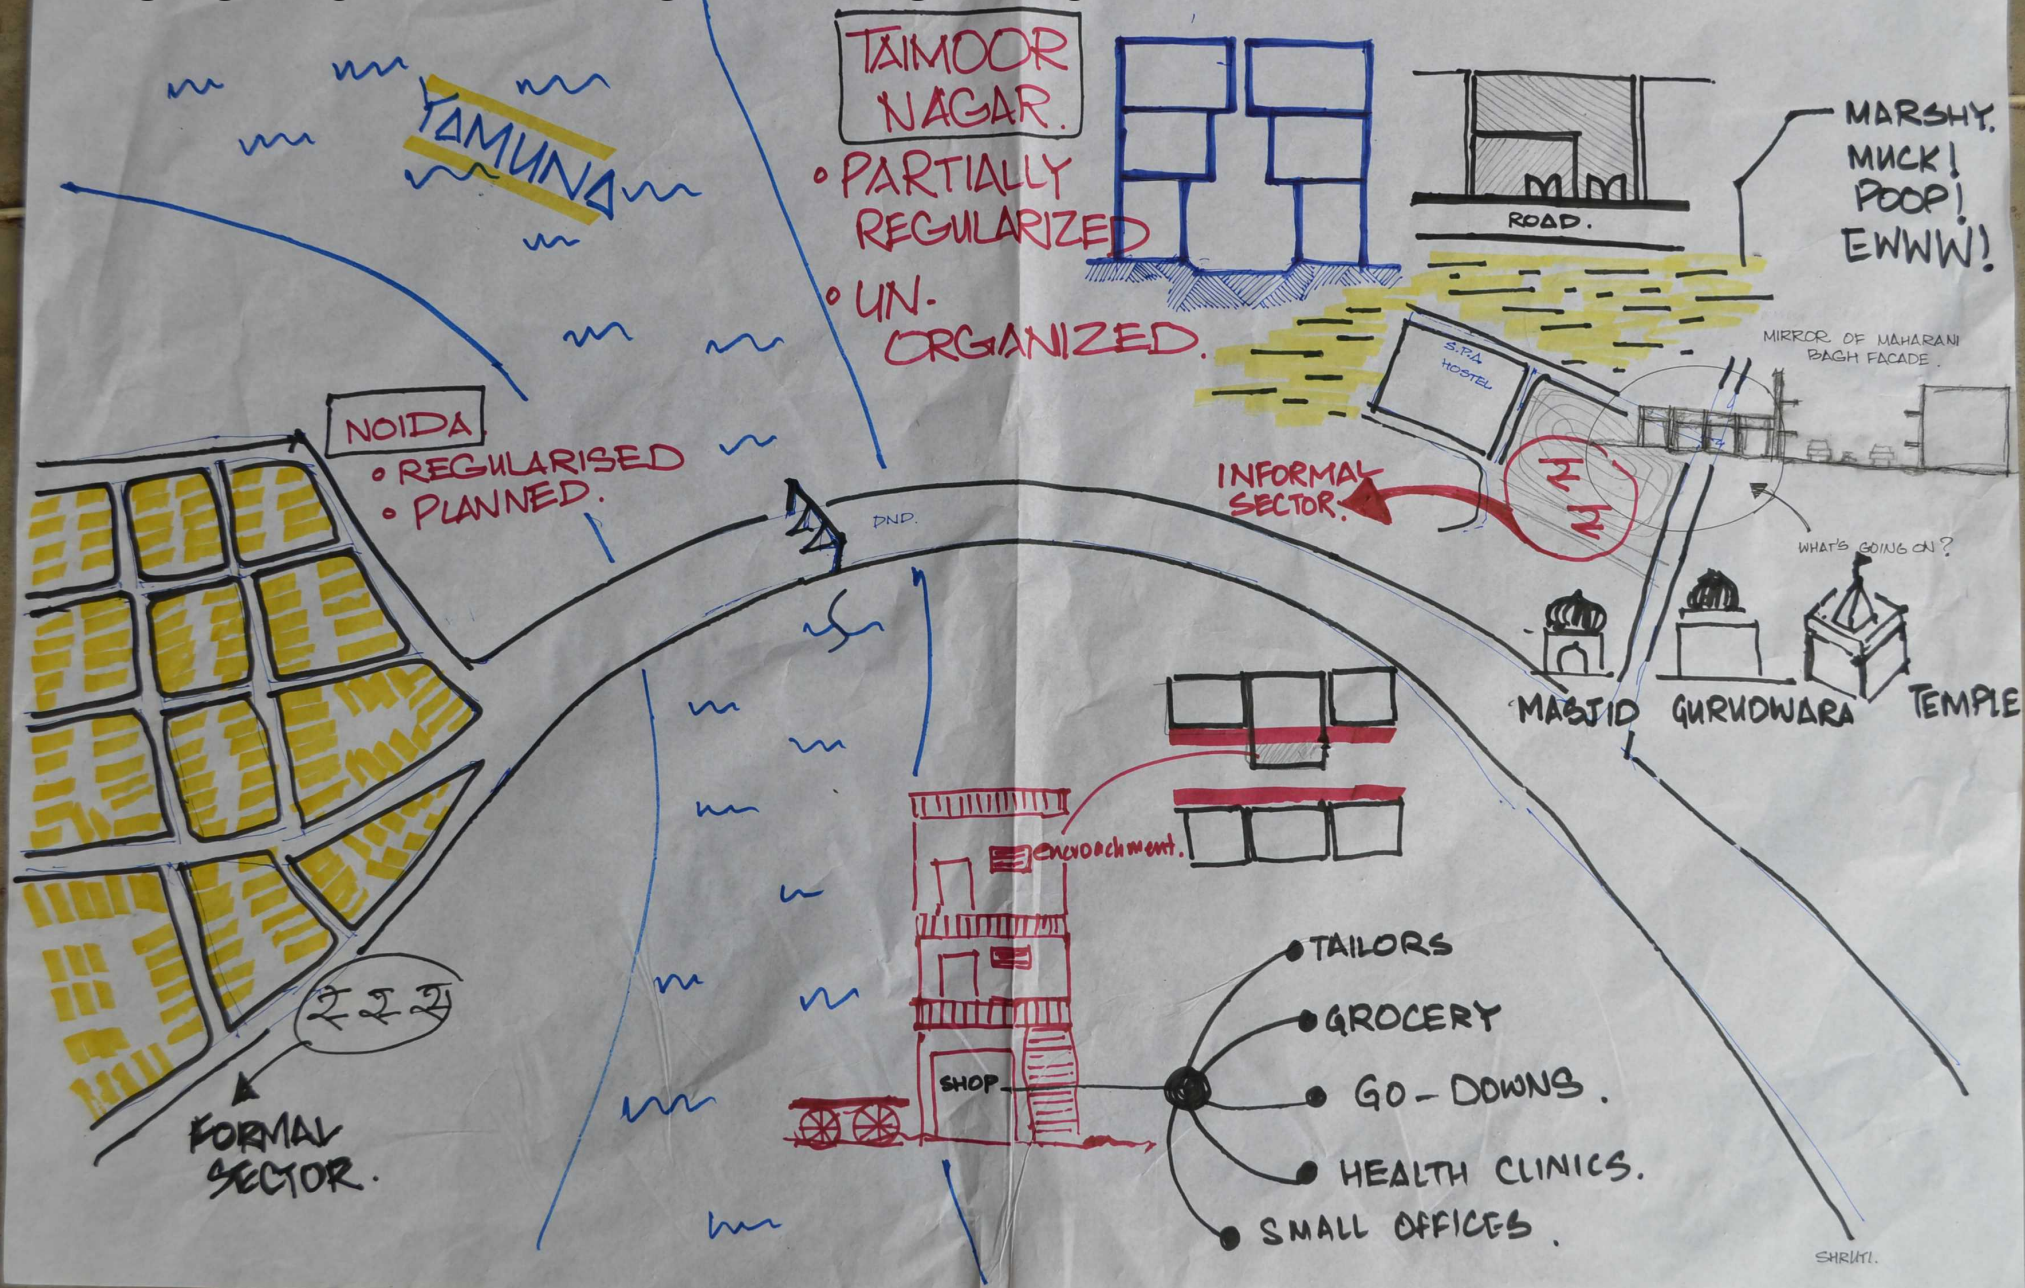 YAMUNA
TAIMOOR
NAGAR.
• PARTIALLY
REGULARIZED
• UN-
ORGANIZED.
ROAD.
MARSHY.
MUCK!
POOP!
EWWW!
S.P.A
HOSTEL
MIRROR OF MAHARANI
BAGH FACADE.
NOIDA
• REGULARISED
• PLANNED.
DND.
INFORMAL
SECTOR.
WHAT'S GOING ON?
MASJID
GURUDWARA
TEMPLE
encroachment.
SHOP
TAILORS
GROCERY
GO-DOWNS.
HEALTH CLINICS.
SMALL OFFICES.
FORMAL
SECTOR.
SHRUTI.